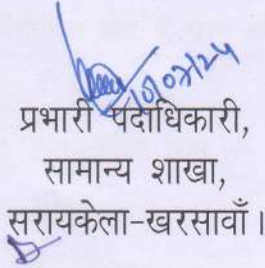 10/07/24
प्रभारी पदाधिकारी,
सामान्य शाखा,
सरायकेला-खरसावाँ।